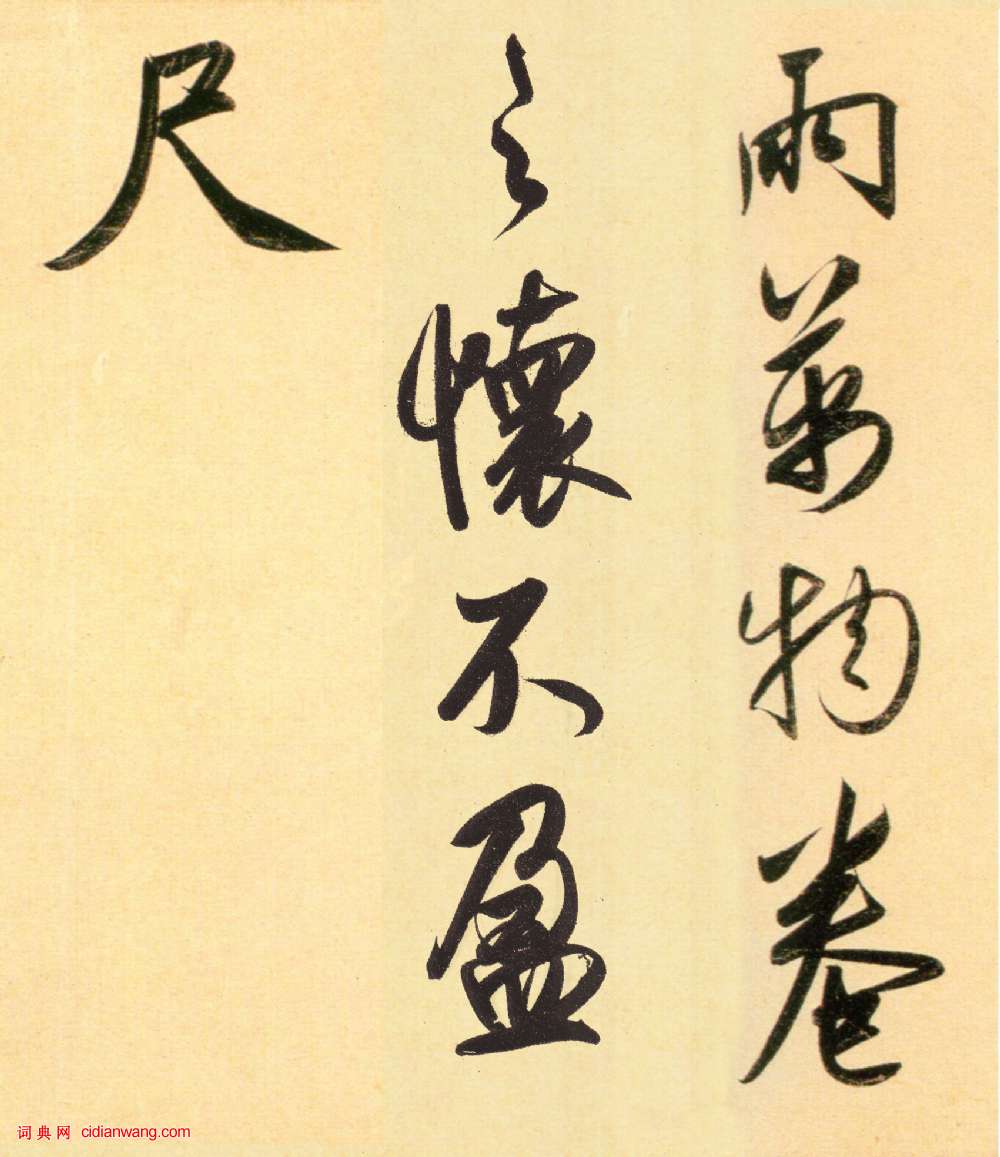 雨萬物卷
之懷不盈
尺
词典网 cidianwang.com